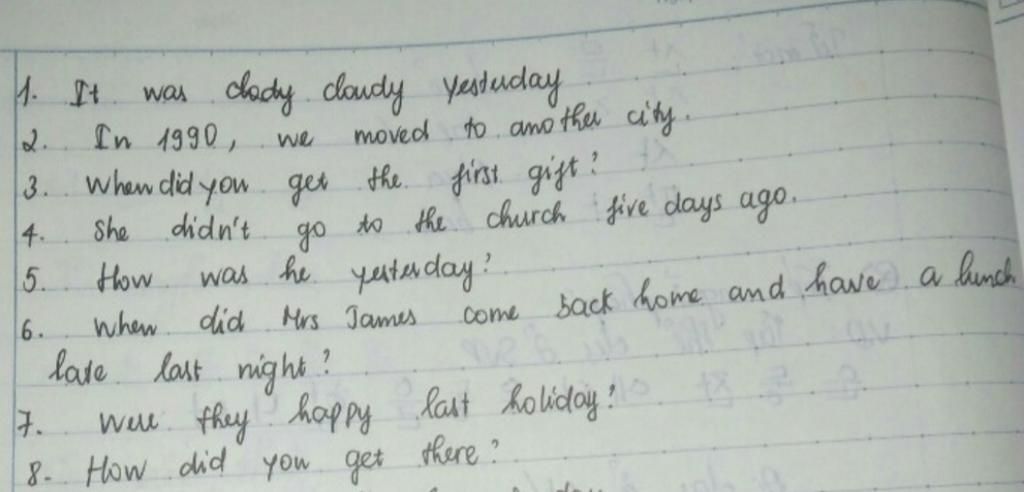 1. It was clody cloudy yesterday
2. In 1990, we moved to another city.
3. When did you get the first gift?
4. She didn't go to the church five days ago.
5. How was he yesterday?
6. When did Mrs James come back home and have a lunch
late last night?
7. Were they happy last holiday?
8. How did you get there?